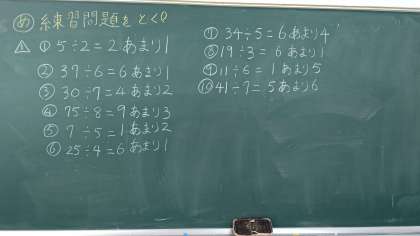 め 練習問題をとく。
△1 ① 5÷2=2あまり1
② 37÷6=6あまり1
③ 30÷7=4あまり2
④ 75÷8=9あまり3
⑤ 7÷5=1あまり2
⑥ 25÷4=6あまり1
⑦ 34÷5=6あまり4
⑧ 19÷3=6あまり1
⑨ 11÷6=1あまり5
⑩ 41÷7=5あまり6